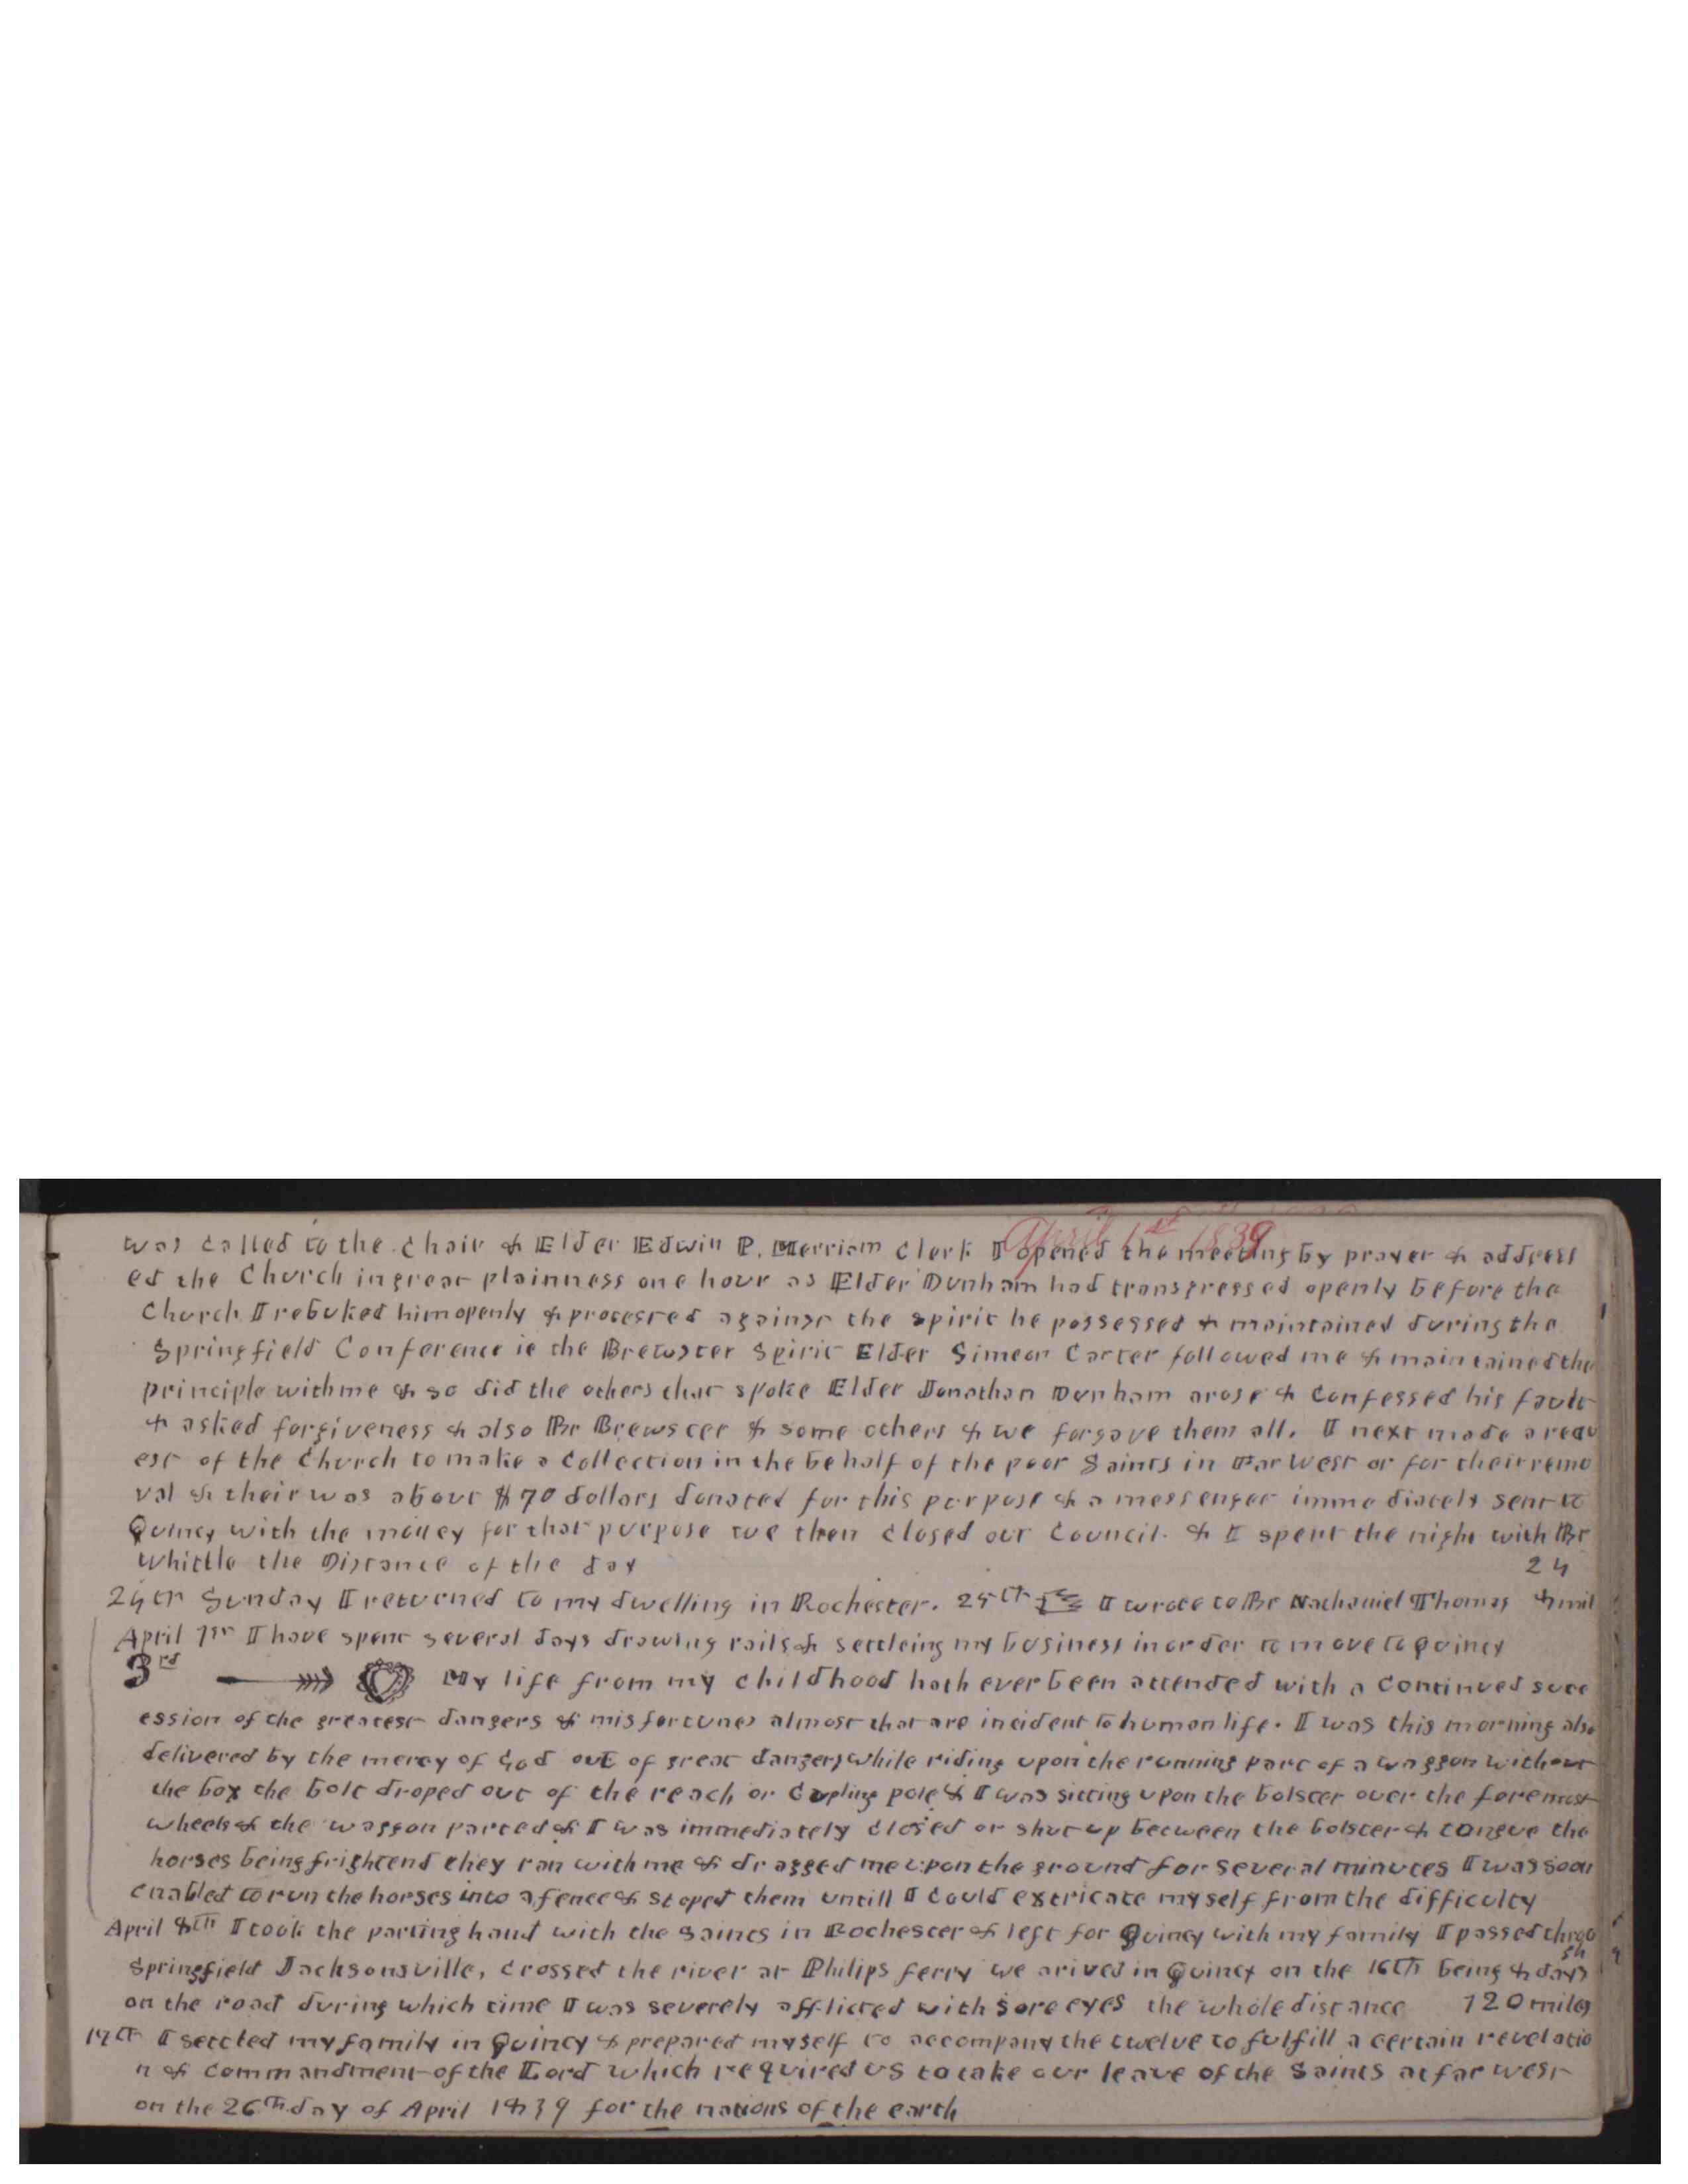 April 1st 1839
was called to the chair & Elder Edwin P. Merriam Clerk I opened the meeting by prayer & address
ed the Church in great plainness one hour as Elder Dunham had transgressed openly before the
Church I rebuked him openly & protested against the spirit he possessed & maintained during the
Springfield Conference ie the Brewster Spirit Elder Simeon Carter followed me & maintained the
principle with me & so did the others that spoke Elder Jonathan Dunham arose & Confessed his fault
& asked forgiveness & also Br Brewster & some others & we forgave them all. I next made a requ
est of the Church to make a Collection in the behalf of the poor Saints in Far West or for their remo
val & their was about $70 dollars donated for this purpose & a messenger immediately sent to
Quincy with the money for that purpose we then closed our Council. & I spent the night with Br
Whittle the Distance of the day 24
24th Sunday I returned to my dwelling in Rochester. 25th I wrote to Br Nathaniel Thomas 8 mil
April 1st I have spent several days drawing rails & settleing my business in order to move to Quincy
3rd My life from my childhood hath ever been attended with a Continued succ
ession of the greatest dangers & misfortunes almost that are incident to human life. I was this morning also
delivered by the mercy of God out of great dangers while riding upon the running part of a waggon without
the box the bolt droped out of the reach or Cupling pole & I was sitting upon the bolster over the foremost
wheels & the waggon parted & I was immediately closed or shut up between the bolster & tongue the
horses being frightend they ran with me & dragged me upon the ground for several minutes I was soon
enabled to run the horses into a fence & stoped them untill I could extricate myself from the difficulty
April 8th I took the parting hand with the Saints in Rochester & left for Quincy with my family I passed throu
gh
Springfield Jacksonsville, crossed the river at Philips ferry we arived in Quincy on the 16th being 8 days
on the road during which time I was severely afflicted with sore eyes the whole distance 120 miles
17th I settled my family in Quincy & prepared myself to accompany the twelve to fulfill a certain revelatio
n & Commandment of the Lord which required us to take our leave of the Saints at far west
on the 26th day of April 1839 for the nations of the earth